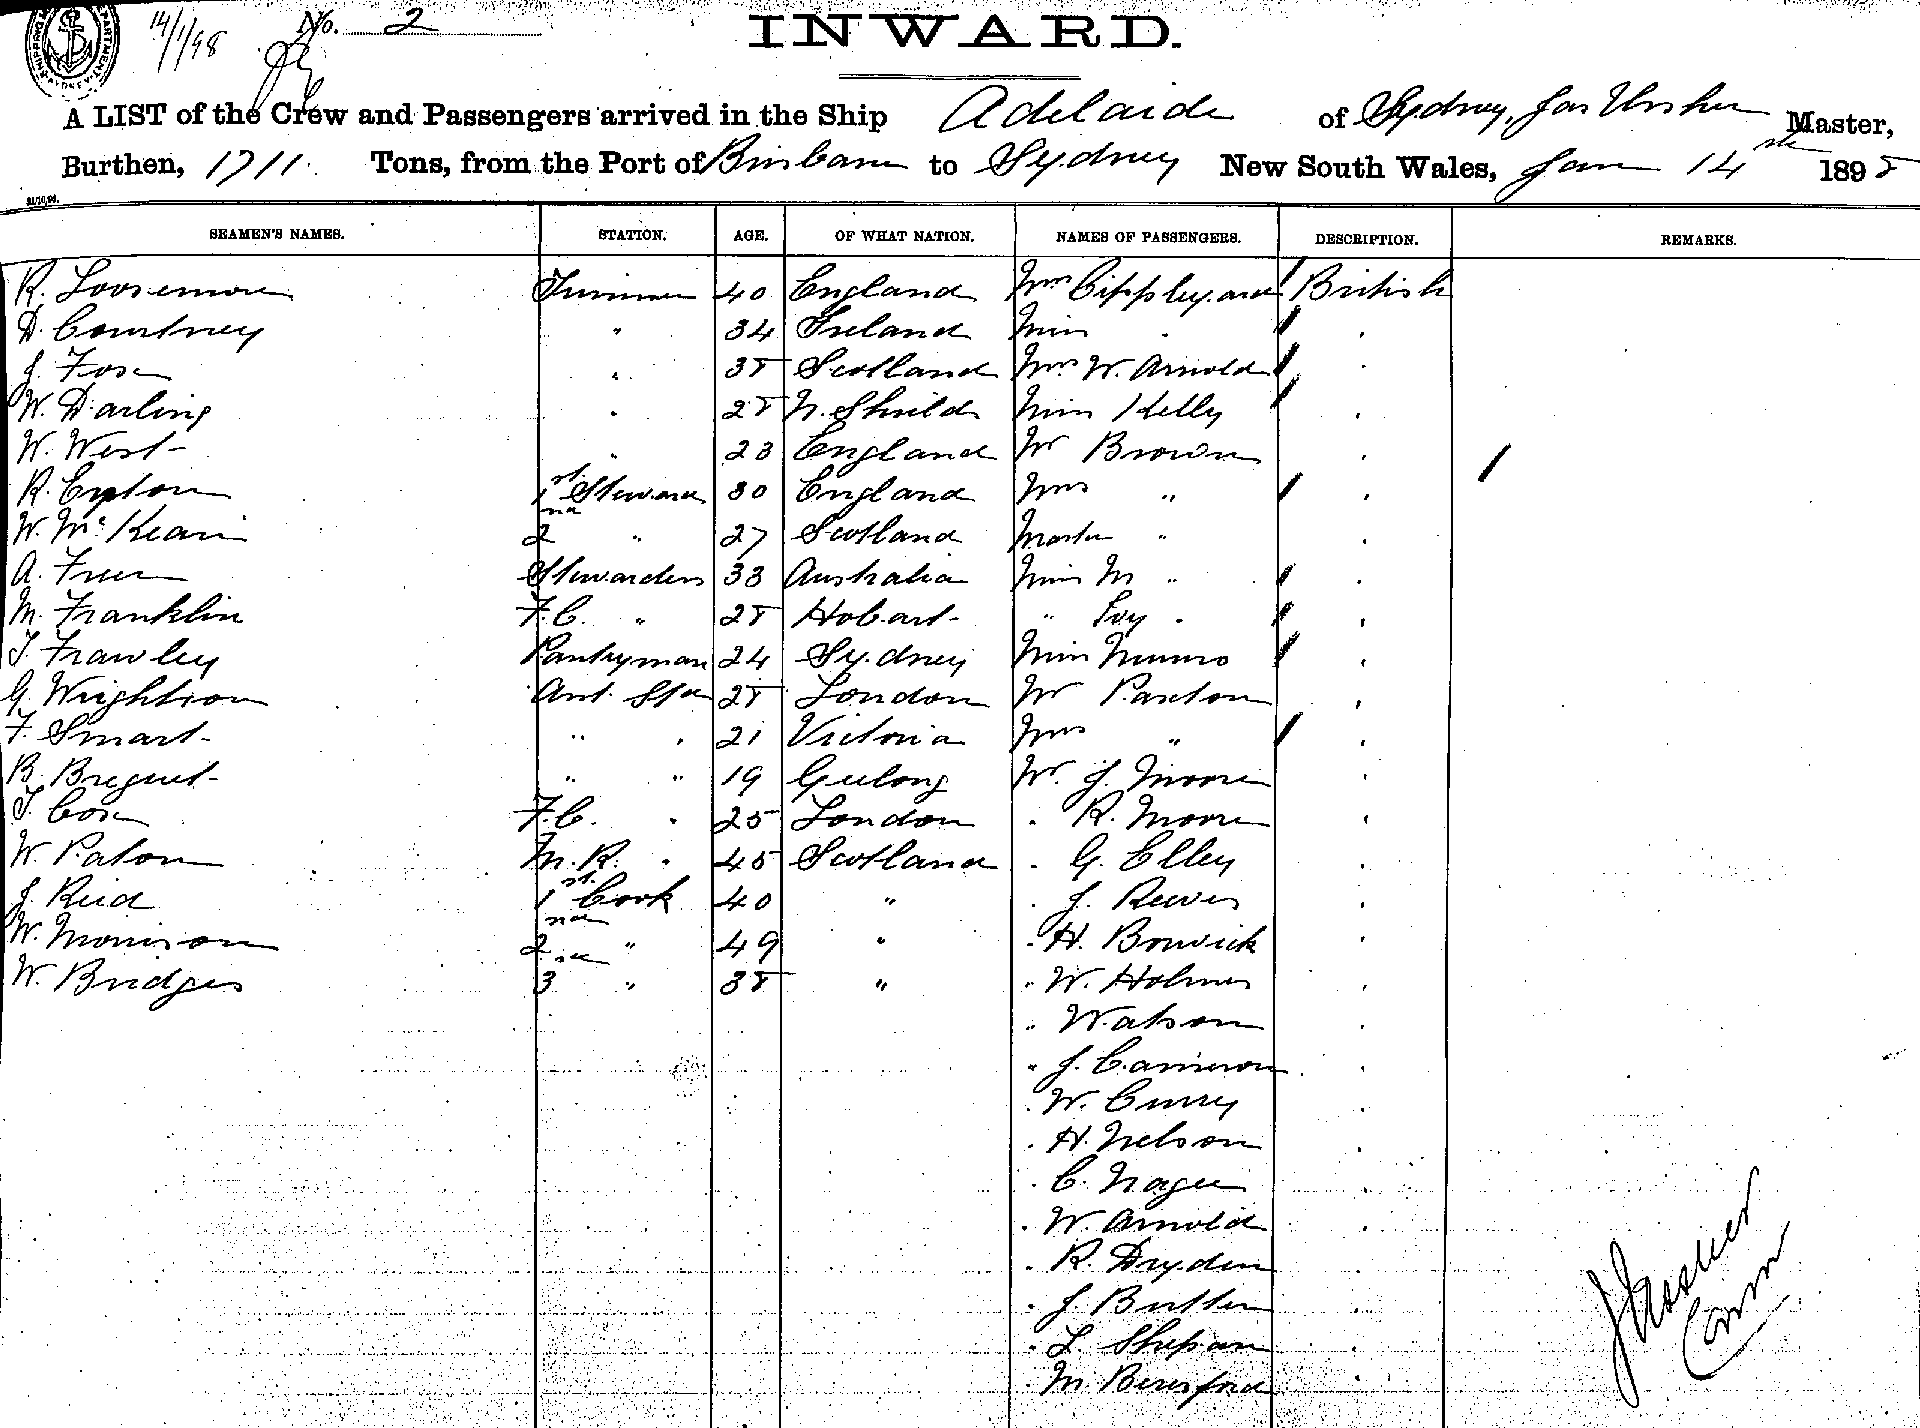 14/1/98 No. 2
INWARD.
A LIST of the Crew and Passengers arrived in the Ship Adelaide of Sydney, Jas Master,
Burthen, 1711 Tons, from the Port of Brisbane to Sydney New South Wales, Jan 14th 1898
SEAMEN'S NAMES. STATION. AGE. OF WHAT NATION. NAMES OF PASSENGERS. DESCRIPTION. REMARKS.
R. Loosemore Trimmer 40 England Mrs British
D. Courtney " 34 Ireland Miss "
J. Fox " 38 Scotland Mrs W. Arnold "
W. Darling " 28 N. Shields Miss Kelly "
W. West " 23 England Mr Brown "
R. 1st Steward 30 England Mrs " "
W. McKean 2nd " 27 Scotland Master " "
A. Freer Stewardess 33 Australia Miss M " "
M. Franklin F.C. " 28 Hobart " Ivy " "
T. Frawley Pantryman 24 Sydney Miss Munro "
G. Wrightson Asst. Std 28 London Mr Paxton "
F. Smart " " 21 Victoria Mrs " "
B. " " 19 Geelong Mr. J. Moore "
T. Cox F.C. " 25 London " R. Moore "
W. Paton M.R. " 45 Scotland " G. Elley "
J. Reid 1st Cook 40 " " J. Reeves "
W. Morrison 2nd " 49 " " H. Borwick "
W. Bridges 3 " 38 " " W. Holmes "
" Watson "
" J. Cameron "
" W. Curry "
" H. Nelson "
" C. "
" W. Arnold "
" R. Dryden "
" J. Butler "
" L. "
" M. Beresford "